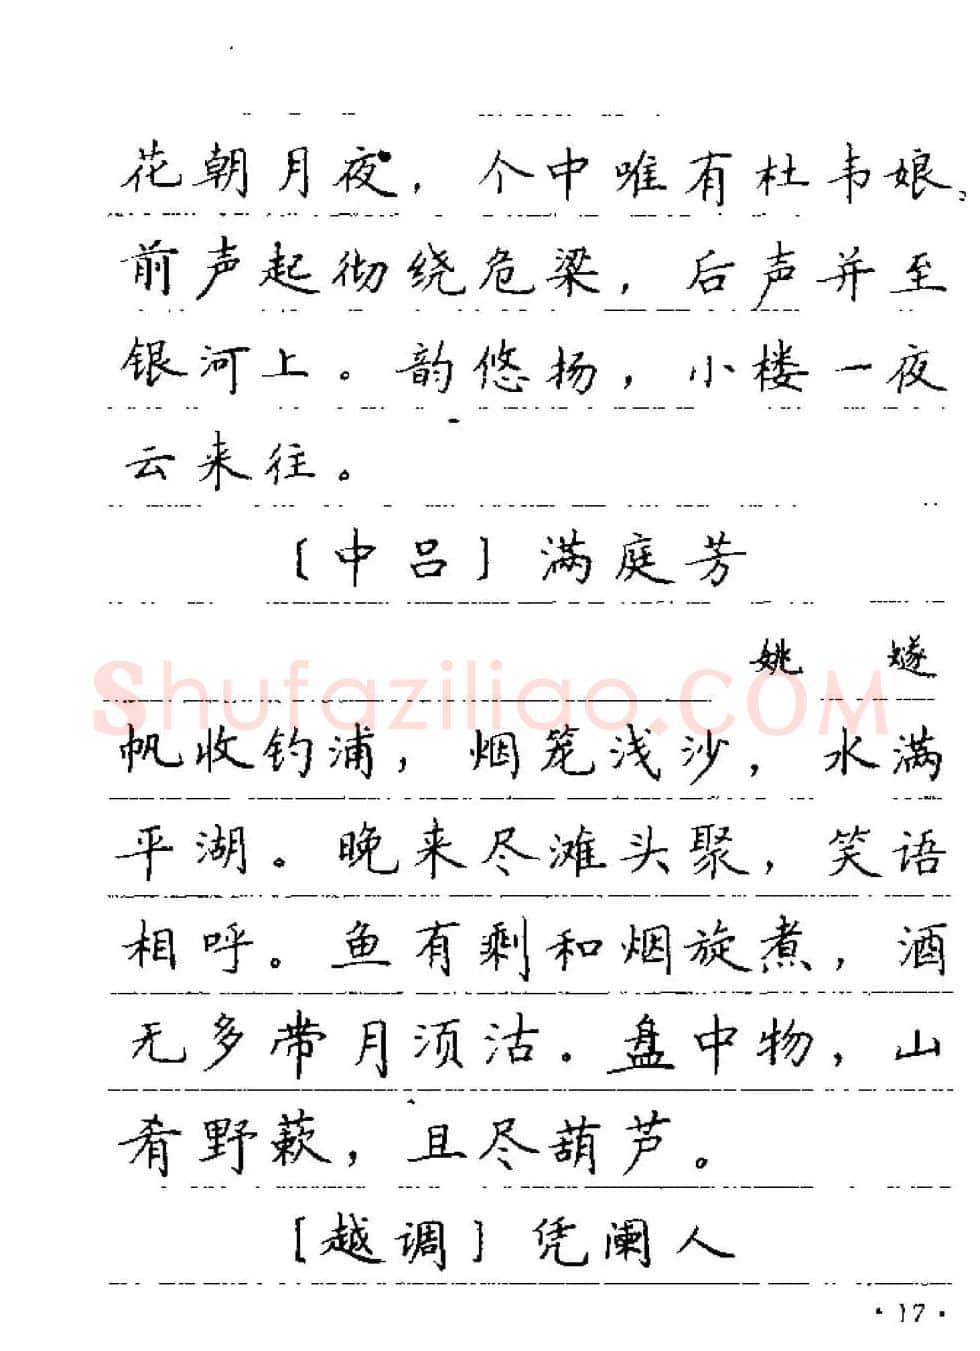 花朝月夜，个中唯有杜韦娘。
前声起彻绕危梁，后声并至
银河上。韵悠扬，小楼一夜
云来往。
［中吕］满庭芳
姚 燧
shufaziliao.COM
帆收钓浦，烟笼浅沙，水满
平湖。晚来尽滩头聚，笑语
相呼。鱼有剩和烟旋煮，酒
无多带月须沽。盘中物，山
肴野蔌，且尽葫芦。
［越调］凭阑人
·17·